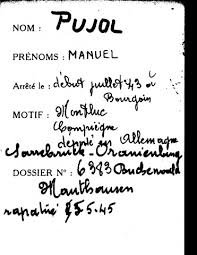 NOM : PUJOL
PRÉNOMS : MANUEL
Arrêté le : début juillet 43 à
Bourgoin
MOTIF : Montluc
Compiègne
déporté en Allemagne
Sarrebruck - Oranienburg
DOSSIER N° : 6383 Buchenwald
Mauthausen
rapatrié 5.45